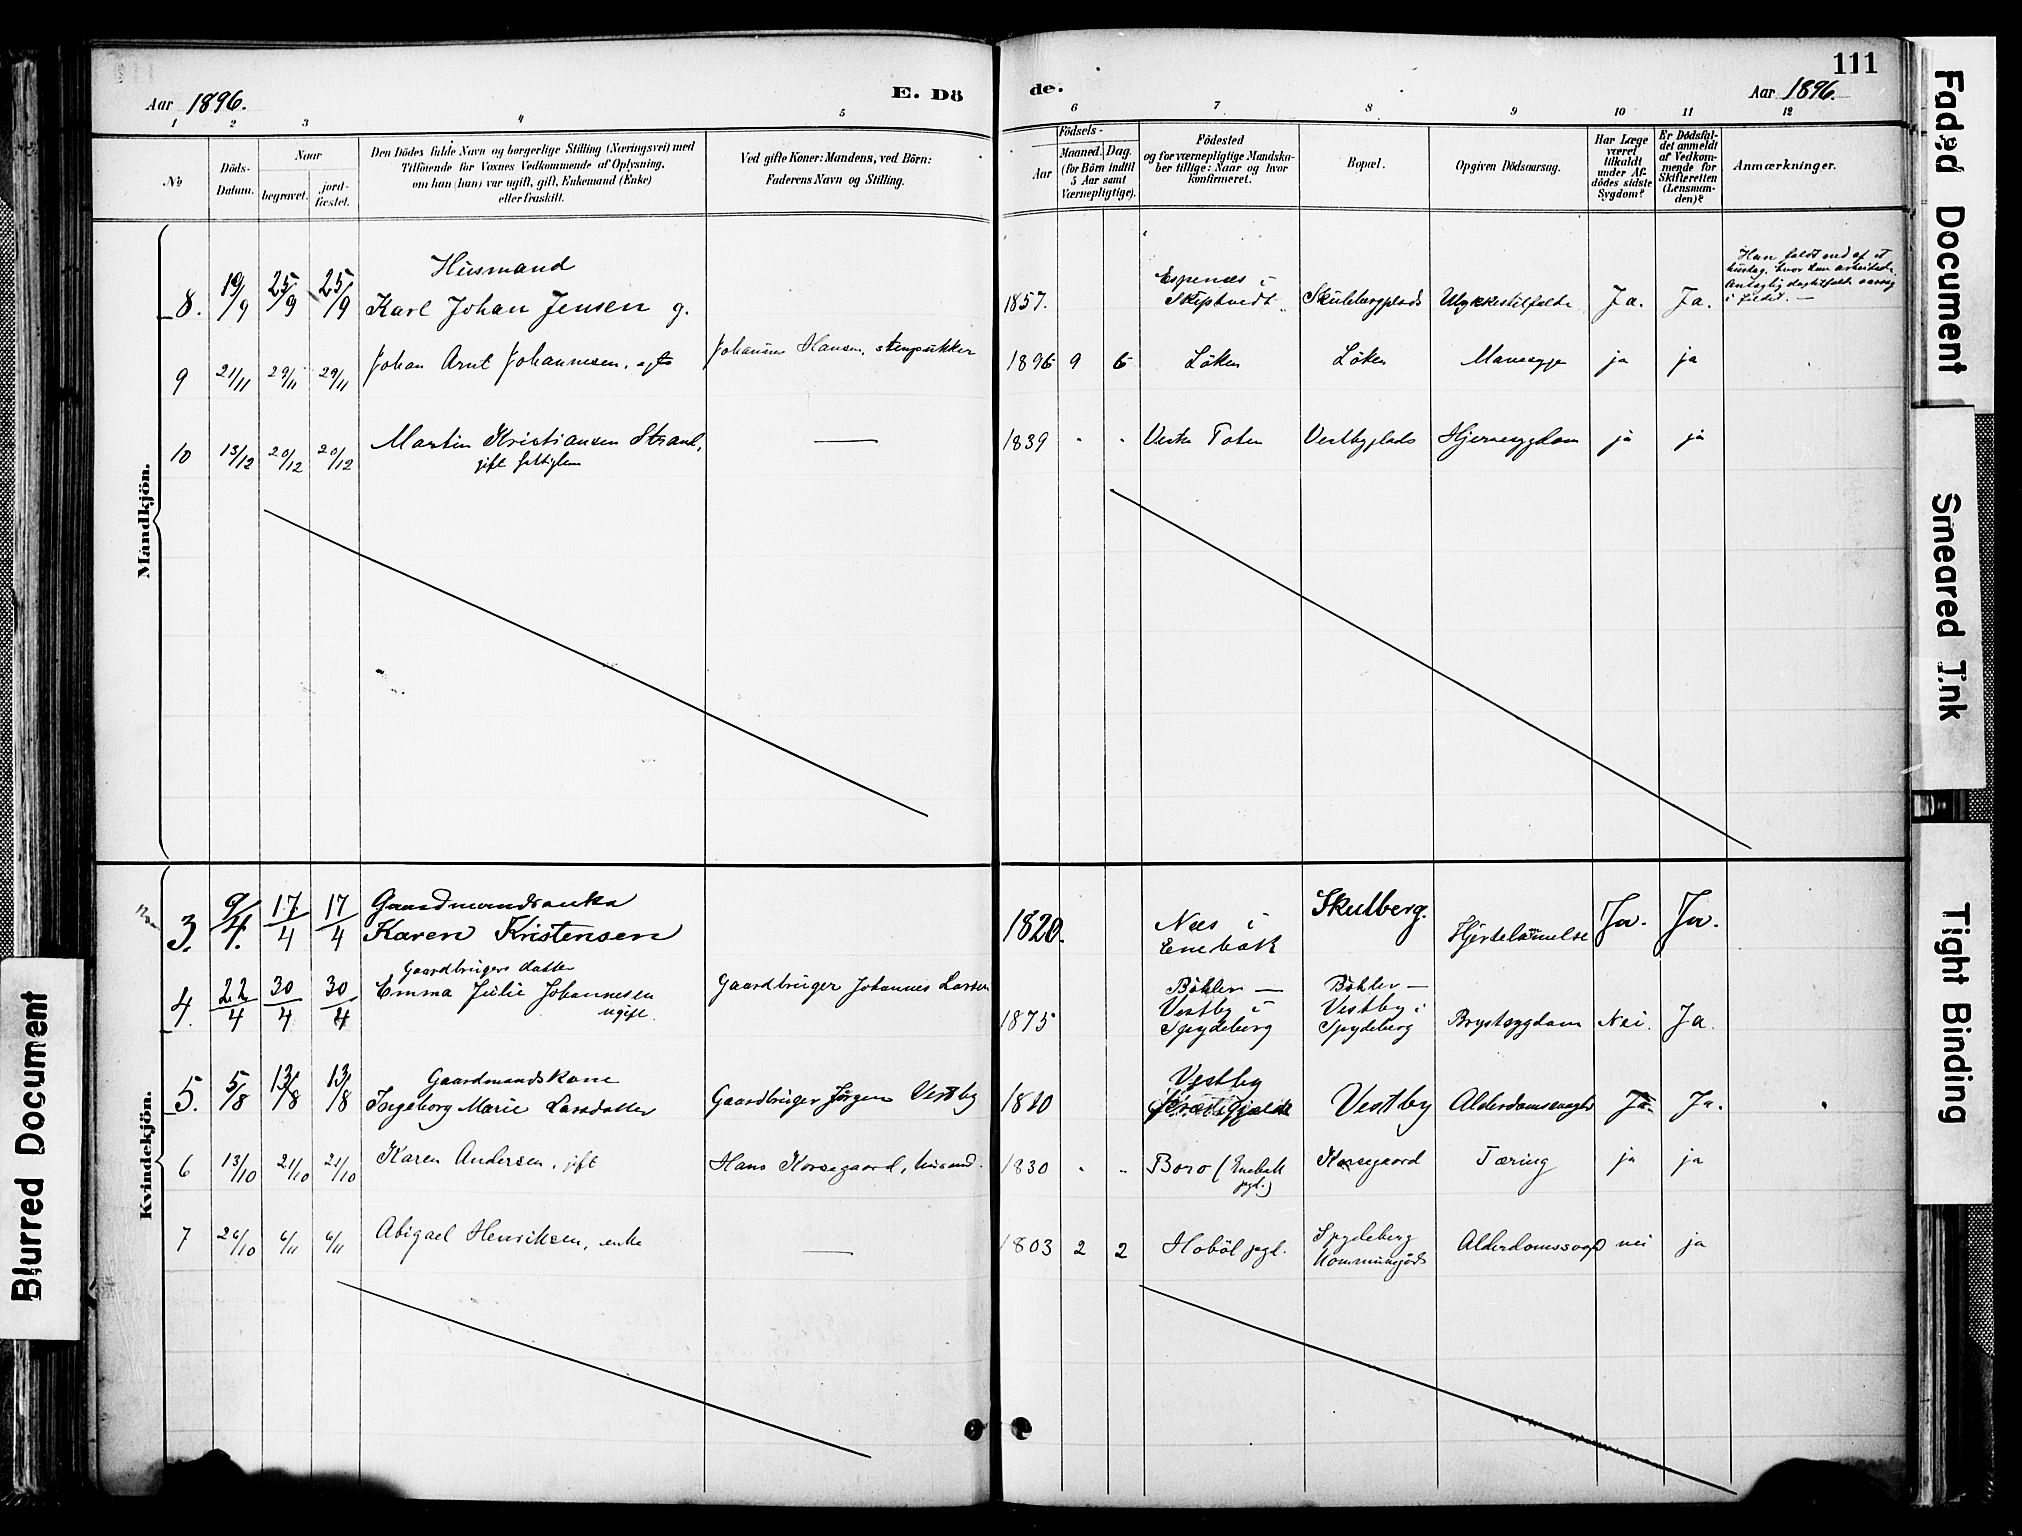 111
Aar 1896.
E. Dö
de.
Aar 1896.
1 2 3 4 5 6 7 8 9 10 11 12
No
Döds-
Datum.
Naar
begravet.
jord-
fæstet.
Den Dödes fulde Navn og borgerlige Stilling (Næringsvei) med
Tilföiende for Voxnes Vedkommende af Oplysning,
om han (hun) var ugift, gift, Enkemand (Enke)
eller fraskilt.
Ved gifte Koner: Mandens, ved Börn:
Faderens Navn og Stilling.
Födsels-
Aar
Maaned. Dag.
(for Börn indtil
5 Aar samt
Værnepligtige).
Födested
og for værnepligtige Mandska-
ber tillige: Naar og hvor
konfirmeret.
Bopæl.
Opgiven Dödsaarsag.
Har Læge
været
tilkaldt
under Af-
dödes sidste
Sygdom?
Er Dödsfal-
det anmeldt
af Vedkom-
mende for
Skifteretten
(Lensman-
den)?
Anmærkninger.
Mandkjön.
8. 19/9 25/9 25/9 Husmand
Karl Johan Jensen g.
1857. Espenæs i
Skiptvedt. Skulebergplads Ulykkestilfælde Ja. Ja.
Han faldt ned af et
hustag, hvor han arbeidede.
i fjeldet. —
9 21/11 29/11 29/11 Johan Arnt Johannesen, Johannes Hansen, stenpukker 1896 9 6 Löken Löken ja ja
10 13/12 20/12 20/12 Martin Kristiansen Strand, — 1839 " " Vestre Toten Vestbyplads Hjernesygdom ja ja
gift fattiglem
Kvindekjön.
3. 9/4. 17/4 17/4 Gaardmandsenke
Karen Kristensen
1820. Næs i
Enebak Skulberg. Hjertelammelse Ja. Ja.
4. 22/4 30/4 30/4 Gaardbrugers datter
Emma Julie Johannesen
ugift.
Gaardbruger Johannes Larsen
1875 Böhler —
Vestby i
Spydeberg
Böhler —
Vestby i
Spydeberg Brystsygdom Nei. Ja.
5. 5/8 13/8 13/8 Gaardmandskone
Ingeborg Marie Larsdatter Gaardbruger Jörgen Vestby 1810 Vestby
Vestby Ja. Ja.
6 13/10 21/10 21/10 Karen Andersen, gift Hans Korsegaard, husmand. 1830 " " Boro (Enebak
pgl.) Korsegaard Tæring ja ja
7 26/10 6/11 6/11 Abigael Henriksen, enke — 1803 2 2 Hoböl pgl. Spydeberg
nei ja
Faded Document
Smeared Ink
Tight Binding
Blurred Document